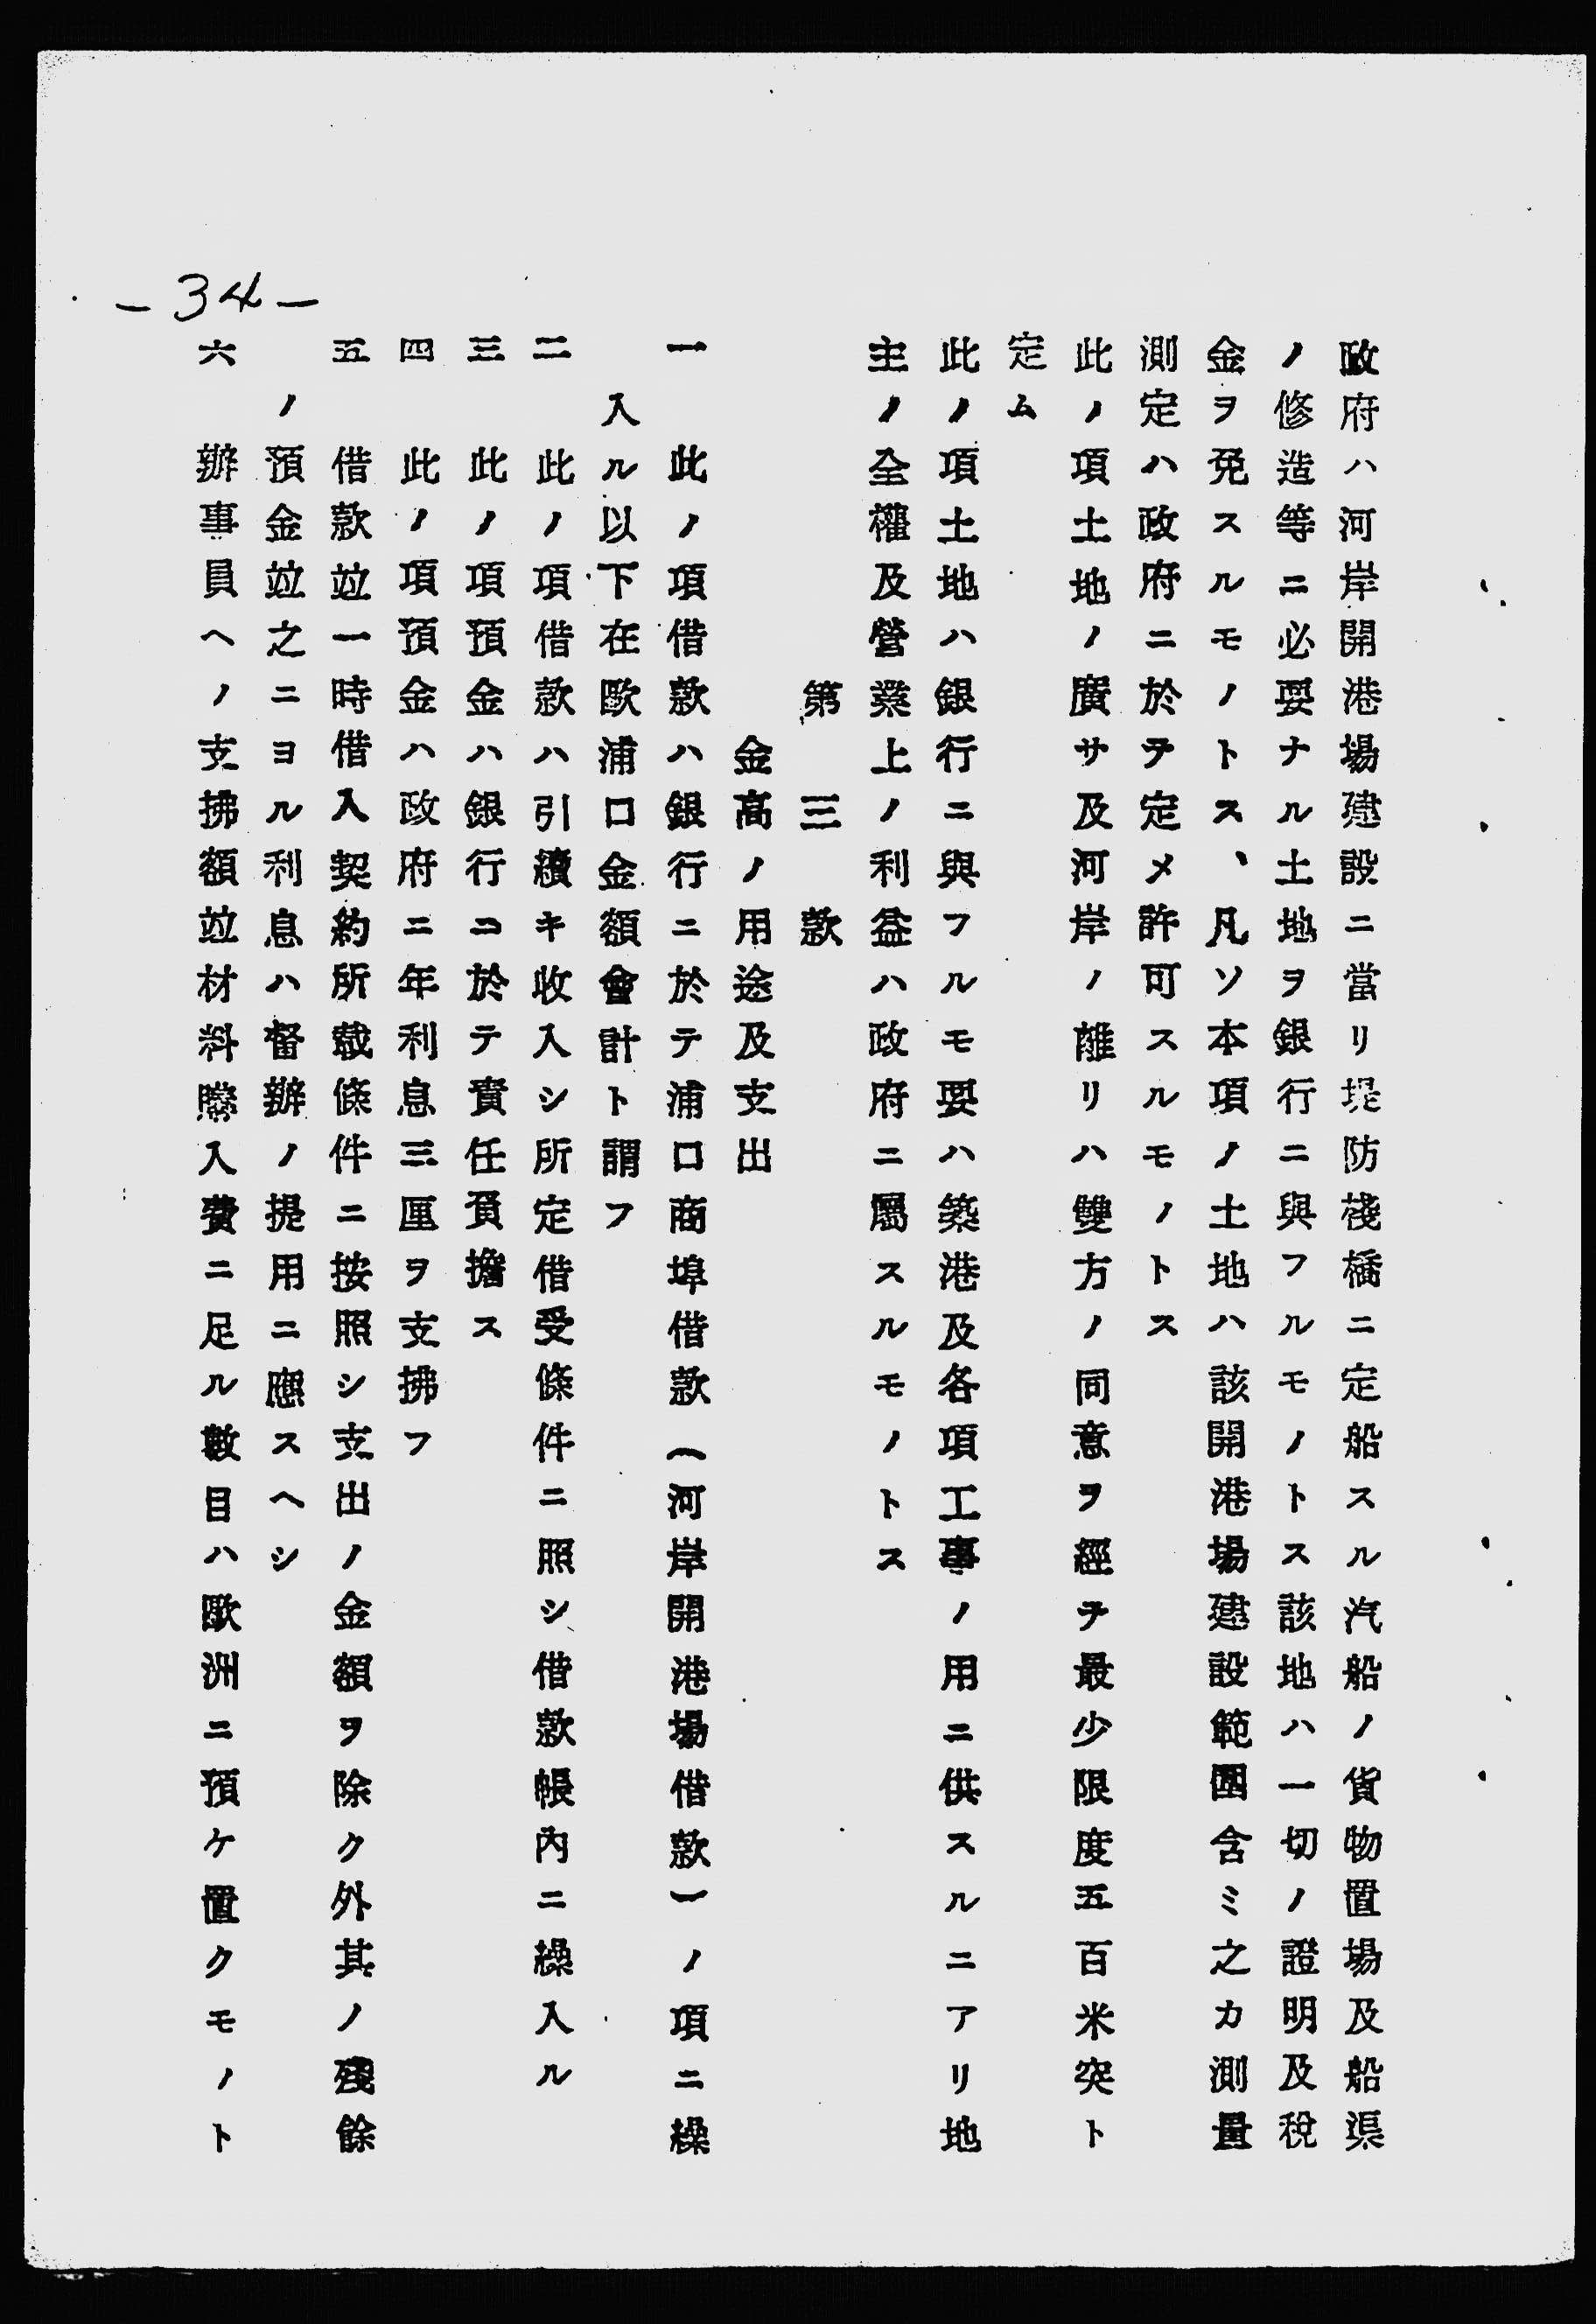 政府ハ河岸開港場建設ニ當リ堤防棧橋ニ定船スル汽船ノ貨物置場及船渠
ノ修造等ニ必要ナル土地ヲ銀行ニ與フルモノトス該地ハ一切ノ證明及稅
金ヲ免スルモノトス、凡ソ本項ノ土地ハ該開港場建設範圍含ミ之カ測量
測定ハ政府ニ於テ定メ許可スルモノトス
此ノ項土地ノ廣サ及河岸ノ離リハ雙方ノ同意ヲ經テ最少限度五百米突ト
定ム
此ノ項土地ハ銀行ニ與フルモ要ハ築港及各項工事ノ用ニ供スルニアリ地
主ノ全權及營業上ノ利益ハ政府ニ屬スルモノトス
第三款
金高ノ用途及支出
一 此ノ項借款ハ銀行ニ於テ浦口商埠借款(河岸開港場借款)ノ項ニ繰
入ル以下在歐浦口金額會計ト謂フ
二 此ノ項借款ハ引續キ收入シ所定借受條件ニ照シ借款帳內ニ繰入ル
三 此ノ項預金ハ銀行ニ於テ責任負擔ス
四 此ノ項預金ハ政府ニ年利息三厘ヲ支拂フ
五 借款竝一時借入契約所載條件ニ按照シ支出ノ金額ヲ除ク外其ノ殘餘
ノ預金竝之ニヨル利息ハ督辦ノ提用ニ應スヘシ
六 辦事員ヘノ支拂額竝材料購入費ニ足ル數目ハ歐洲ニ預ケ置クモノト
-34-